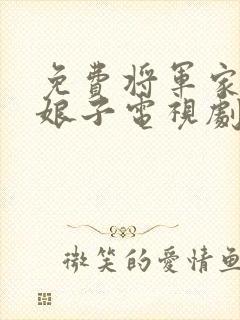 免費將軍家
娘子電視劇
微笑的愛情魚